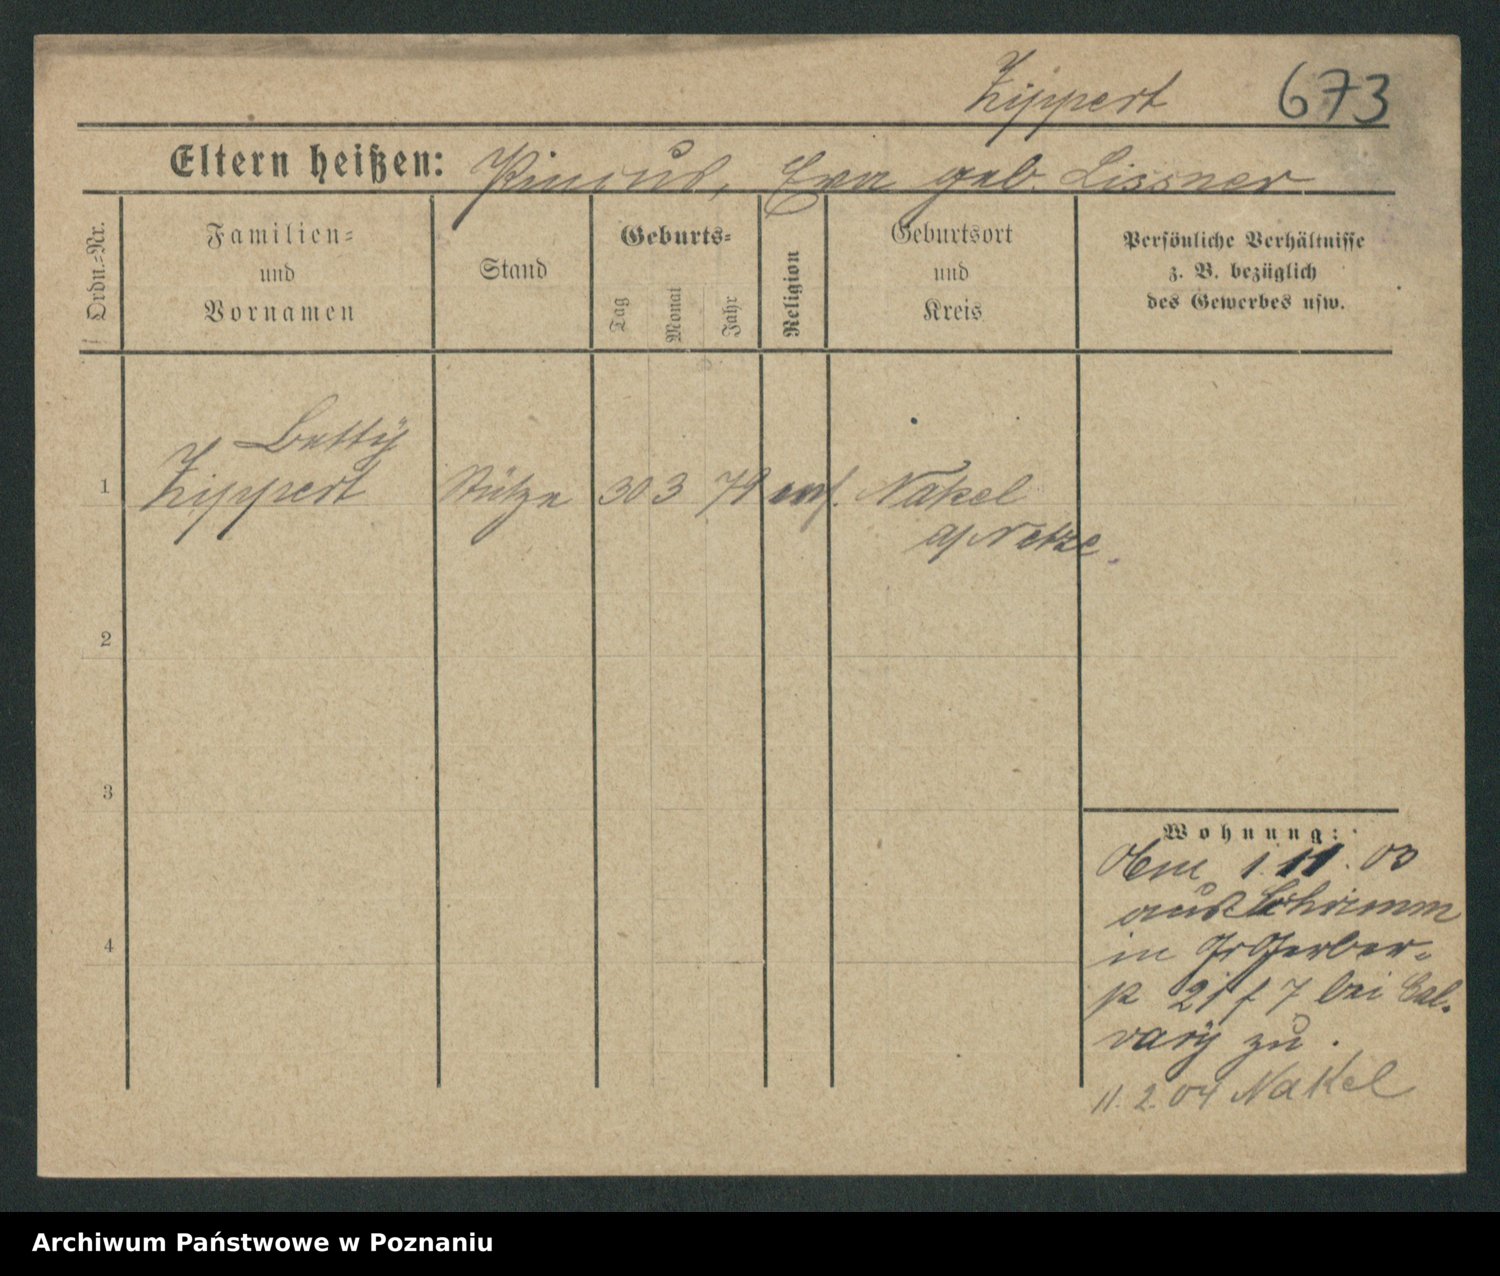 Zippert 673
Eltern heißen: Pincus, Eva geb. Lissner
Ordn.-Nr.
Familien-
und
Vornamen
Stand
Geburts-
Tag
Monat
Jahr
Religion
Geburtsort
und
Kreis
Persönliche Verhältnisse
z. B. bezüglich
des Gewerbes usw.
Betty
1 Zippert Stütze 30 3 79 mos. Nakel
a/Netze.
2
3
4
Wohnung:
Am 1. 11. 03
aus Schrimm
in Gr Gerber-
str 21 f 7 bei Cal-
vary zu.
11. 2. 04 Nakel
Archiwum Państwowe w Poznaniu